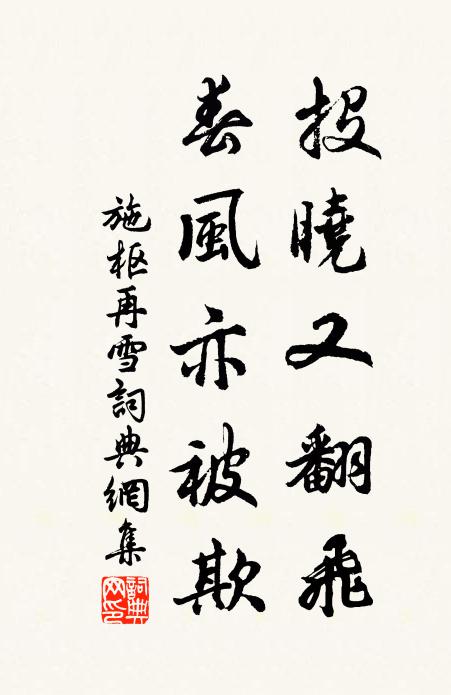 投曉又翻飛
春風亦被欺
施枢再雪詞典網集
詞典網印